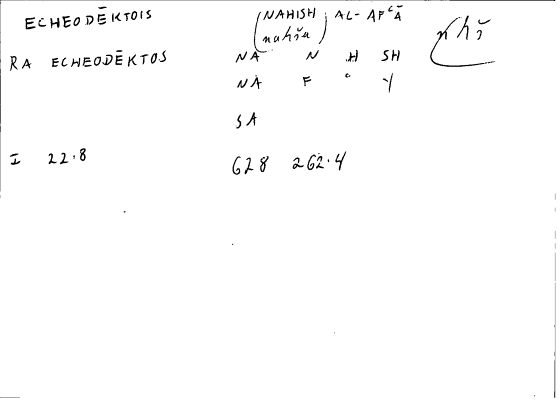 ECHEODĒKTOIS (NAHISH AL-AFʿĀ nhš
(nahša)
RA ECHEODĒKTOS NA N H SH
NA F ʿ Y
SA
I 22.8 628 262.4